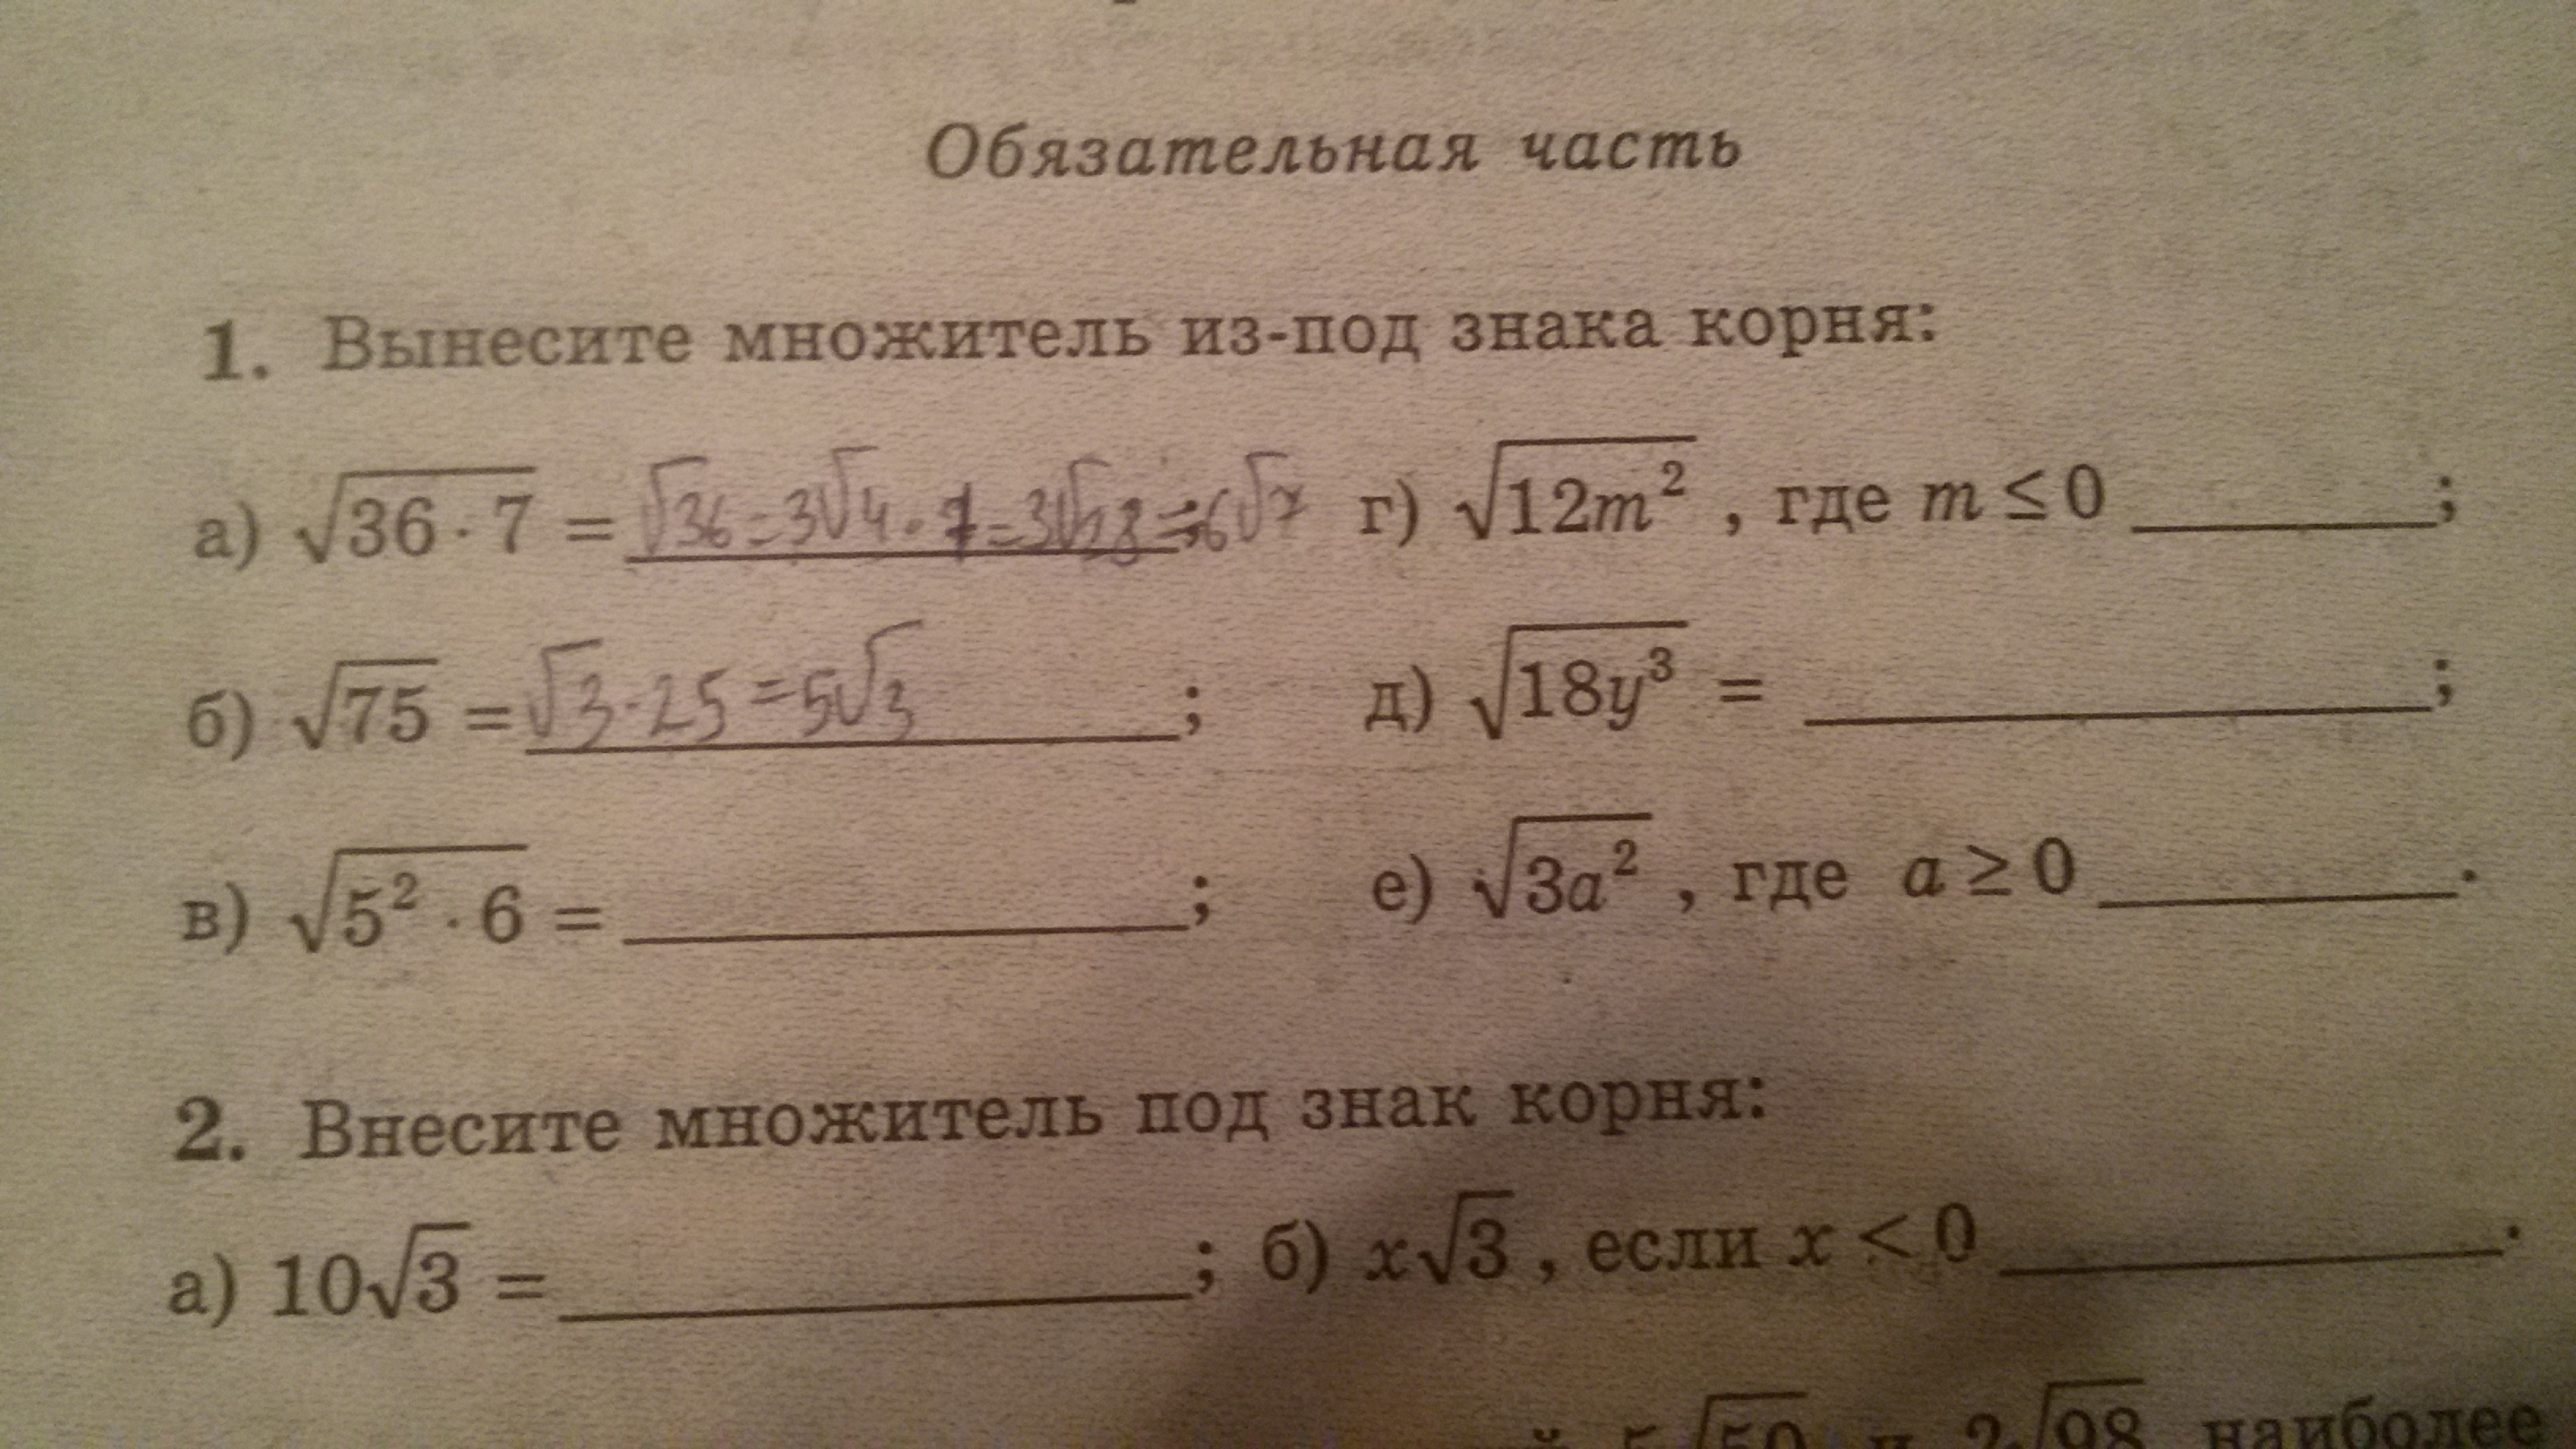 Обязательная часть
1. Вынесите множитель из-под знака корня:
а) √36 · 7 = √36=3√4·7=3√28=6√7 г) √12m², где m ≤ 0 ______;
б) √75 = √3·25=5√3 ; д) √18y³ = ______;
в) √5² · 6 = ______; е) √3a², где a ≥ 0 ______.
2. Внесите множитель под знак корня:
а) 10√3 = ______; б) x√3, если x < 0 ______.
5√50 и 2√98 наиболее